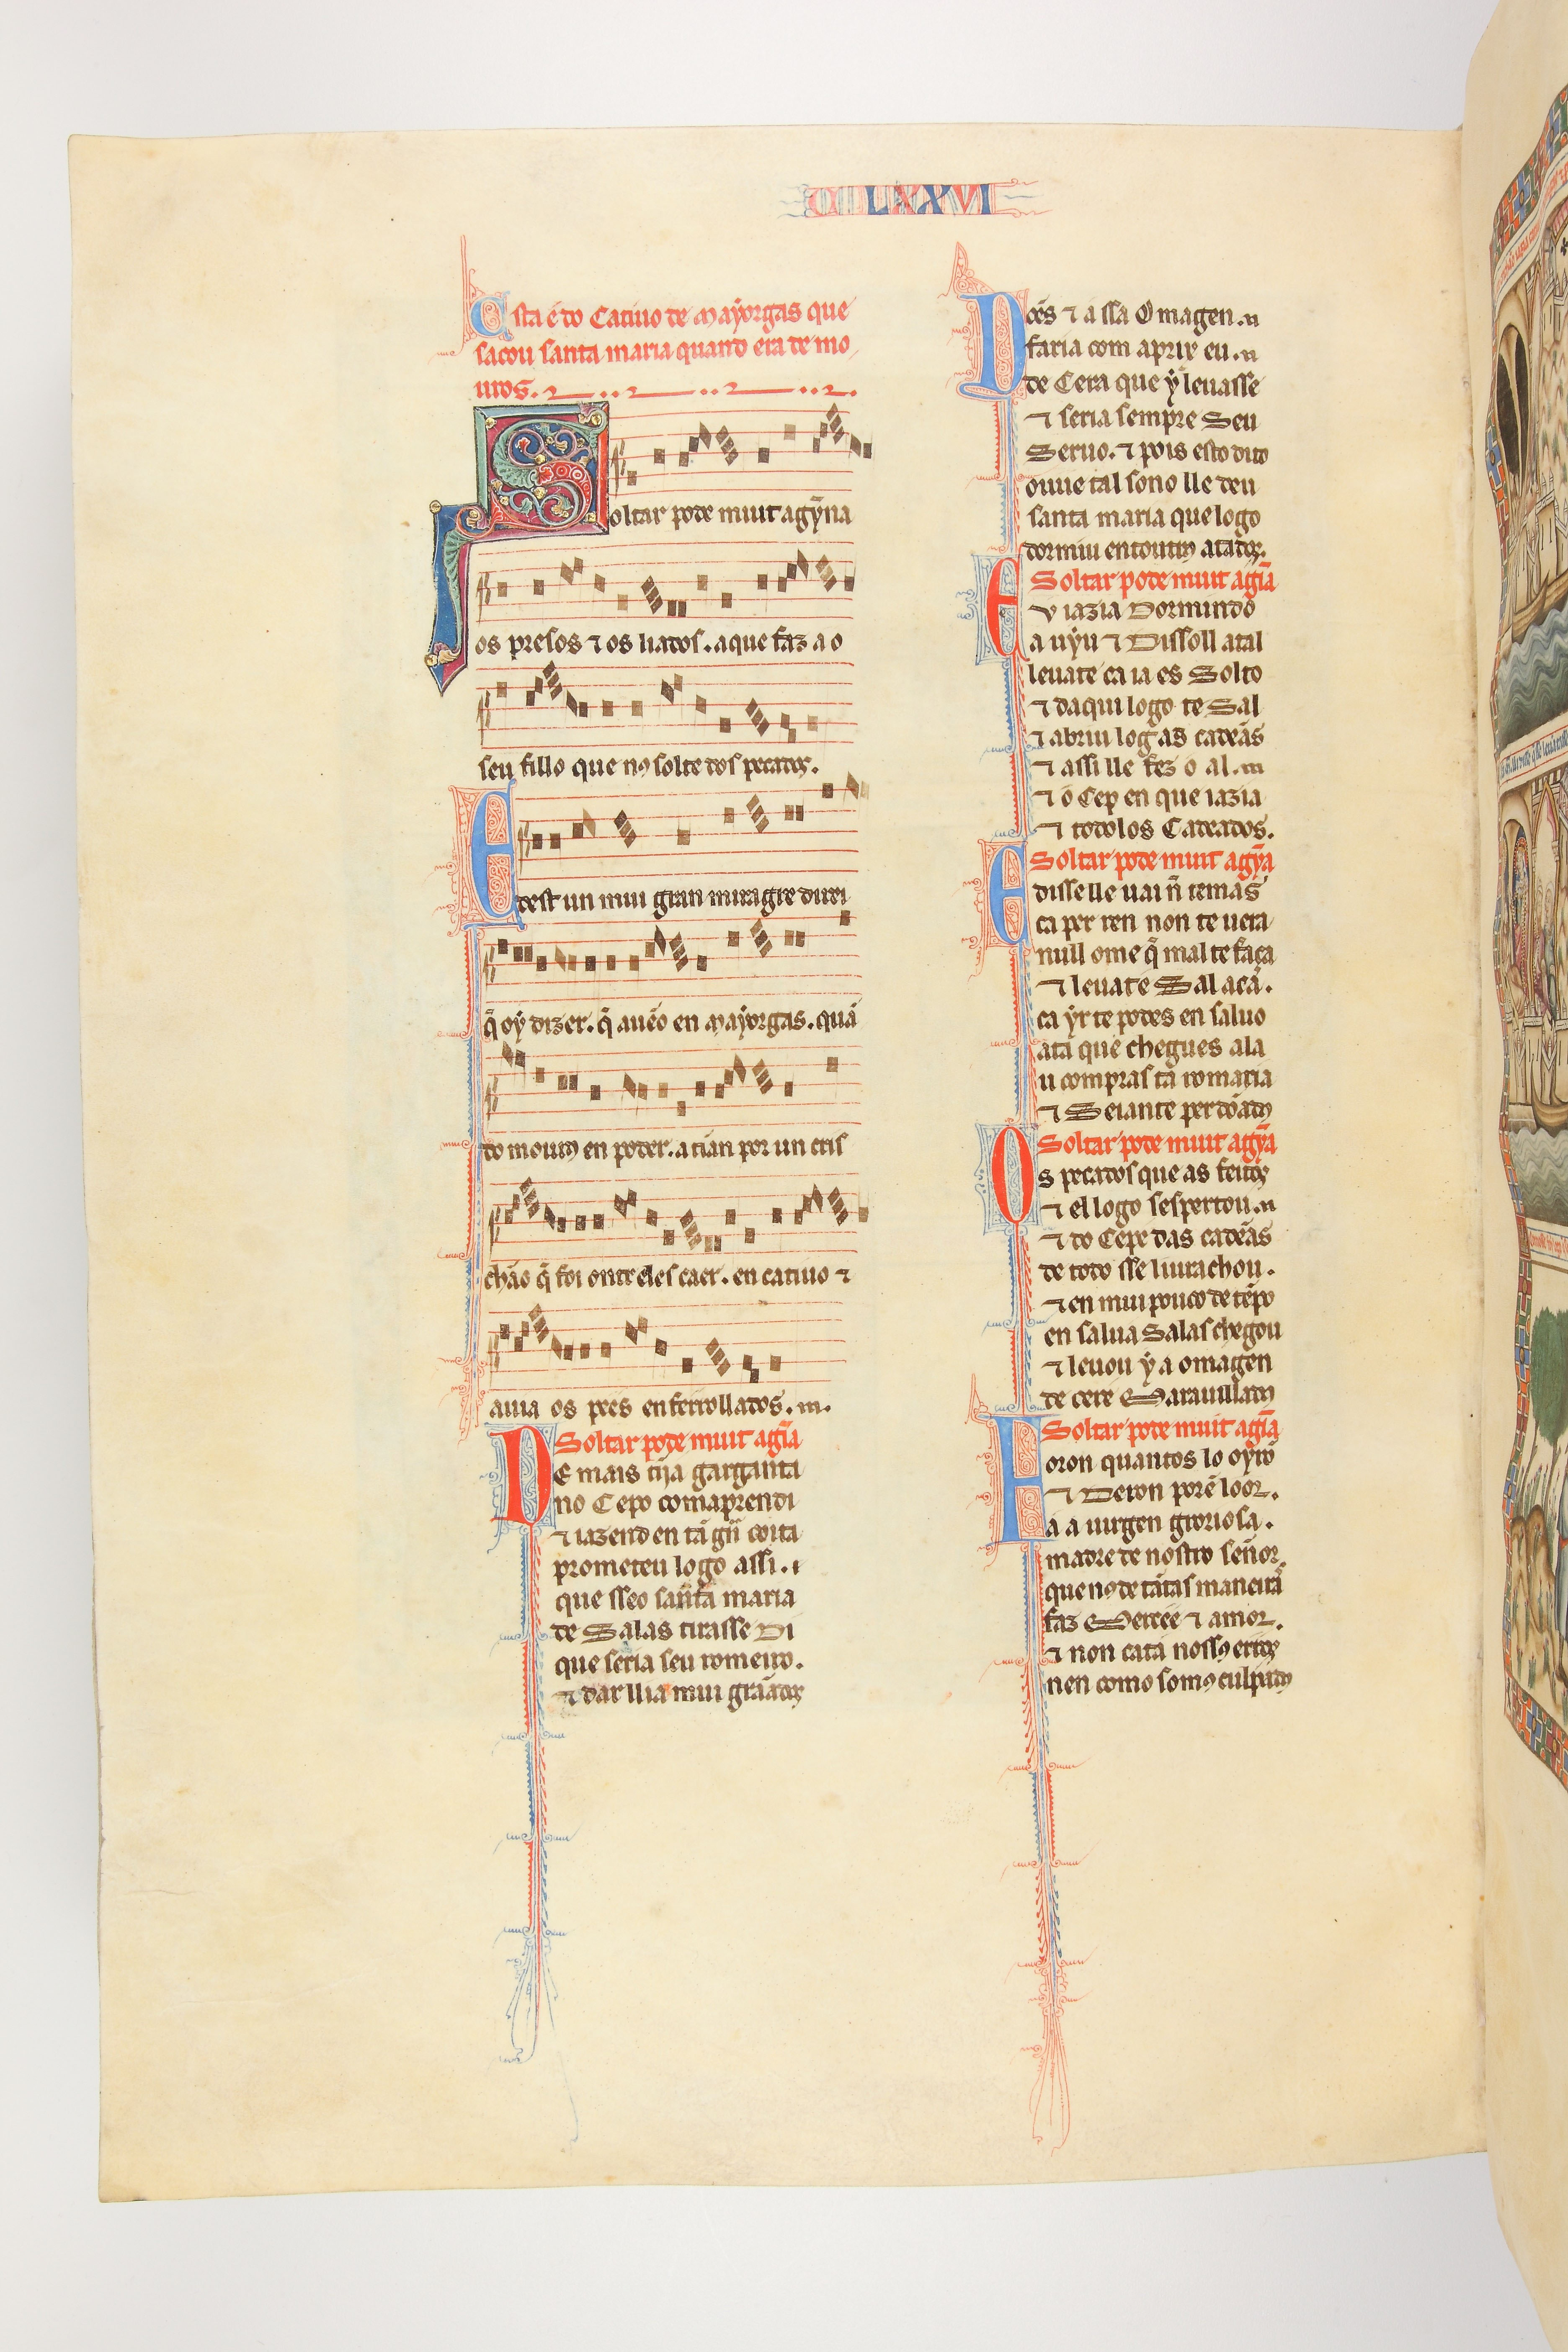 C LXXVI
Esta é do Catiuo de Mayorgas que
sacou santa maria quando era de mo
uros.
Soltar pode muit agỹna
os presos ⁊ os liados. a que faz a o
seu fillo que nos solte dos pecados.
E dest un mui gran miragre direi
q̃ oý dizer. q̃ auẽo en Mayorgas. quã
do mouros en poder. a tían por un cris
chão q̃ foi ontreles caer. en catiuo ⁊
auia os pees enferrollados.
Soltar pode muit agĩa
De mais tijna garganta
no Cepo com aprendi
⁊ iazend en tã grã coita
prometeu logo assi.
que sseo santa maria
de Salas tirasse Di
que seria seu romeiro.
⁊ dar llia mui grãados
Dões ⁊ a ssa Omagen.
faria com aprix eu.
de Cera que ý leuasse
⁊ seria sempre Seu
Seruo. ⁊ pois esto dito
ouue tal sono lle deu
santa maria que logo
dormiu en toutros atados.
Soltar pode muit agĩa
E u iazia Dormindo
a uýu ⁊ Dissoll atal
leuate ca ia es Solto
⁊ daqui logo te Sal
⁊ abriu log as cadẽas
⁊ assi lle fez o al.
⁊ o Cep en que iazia
⁊ todolos Cadeados.
Soltar pode muit agỹa
E disselle uai ñ temas
ca per ren non te uera
null ome q̃ mal te faça
⁊ leuate Sal acá.
ca ýr te podes en saluo
atá que chegues ala
u compras ta romaria
⁊ Seiante perdõados
Soltar pode muit agỹa
Os pecados que as feitos
⁊ el logo sespertou.
⁊ do Cepe das cadẽas
de todo sse liurachou.
⁊ en mui pouco de tẽpo
en salua Salas chegou
⁊ leuou ý a omagen
de cere Marauillados
Soltar pode muit agĩa
Foron quantos lo oyrõ
⁊ Deron porẽ loor.
aa uirgen groriosa.
madre de nostro señor.
que nos de tãtas maneirã
faz Mercee ⁊ amor.
⁊ non cata nossos erros
nen como somos culpados